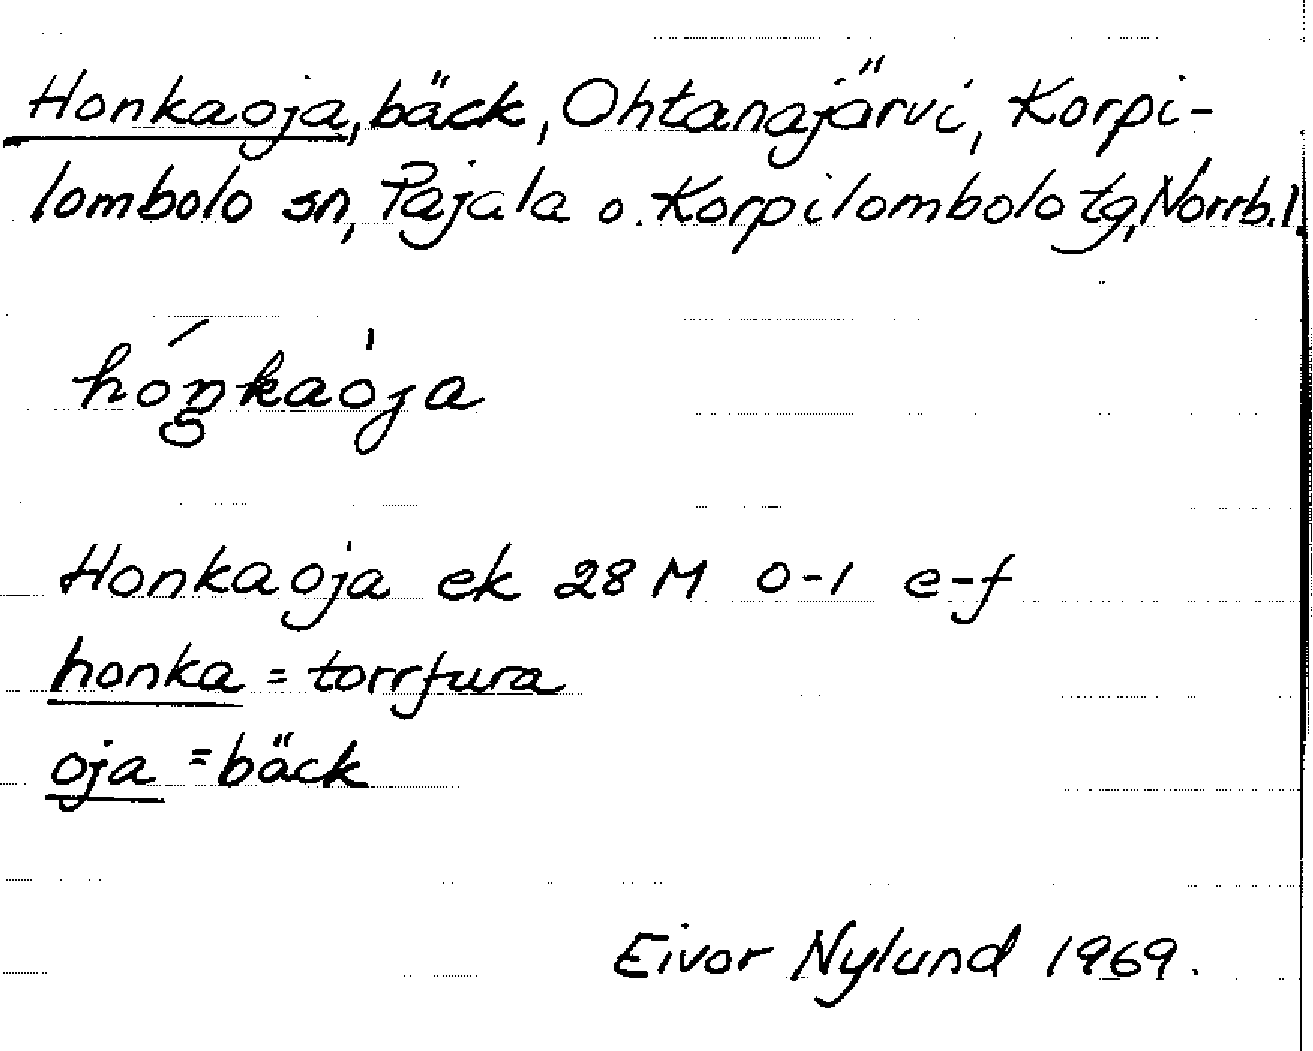 Honkaoja, bäck, Ohtanajärvi, Korpi-
lombolo sn, Pajala o. Korpilombolo tg, Norrb.l.
hóŋkaòja
Honkaoja ek 28 M 0-1 e-f
honka = torrfura
oja = bäck
Eivor Nylund 1969.